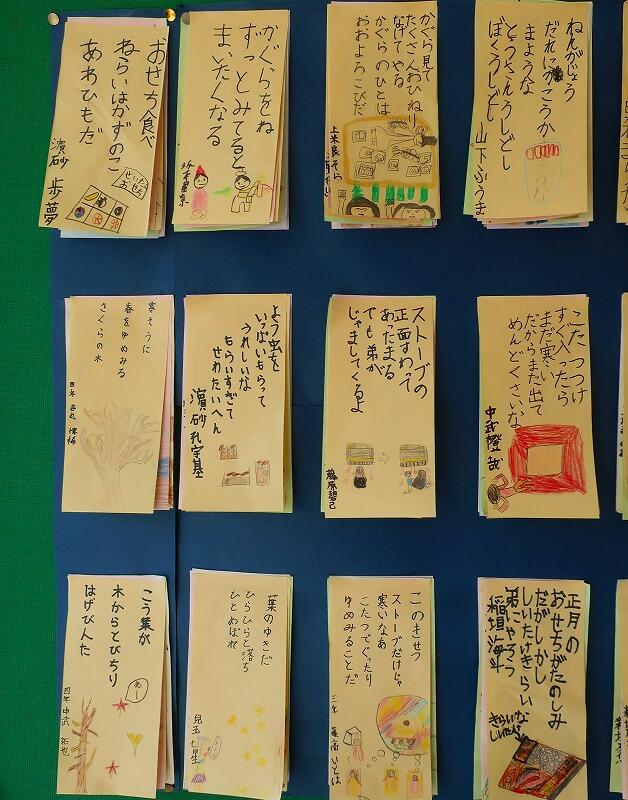 おせち食べ
ねらいはかずのこ
あれひもだ
濵砂 歩夢
かぐらをね
ずっとみてると
まいたくなる
かぐら見て
たくさんおひねり
なげてやる
かぐらのひとは
おおよろこびだ
上米良そら
ねんがじょう
だれにかこうか
まような
とうさんうしどし
ぼくうしどし
山下ふうま
寒そうに
春をゆめみる
さくらの木
四年
よう虫を
いっぱいもらって
うれしいな
もういすぎて
せわたいへん
濵砂
ストーブの
正面すわって
あったまる
でも弟が
じゃましてくるよ
藤原碧己
こたつつけ
すぐ入ったら
まだ寒い
だからまた出て
めんどくさいな
中武橙哉
こう葉が
木からとびちり
はげびんた
四年 中武 拓也
葉のゆきだ
ひらひらと落ち
ひとめぼれ
児玉七星
このきせつ
ストーブだけじゃ
寒いなあ
こたつでぐったり
ゆめみることだ
三年
いとは
正月の
おせちがたのしみ
だがしかし
しいたけきらい
弟にやろう
稲垣海斗
きらいな
しいたけ